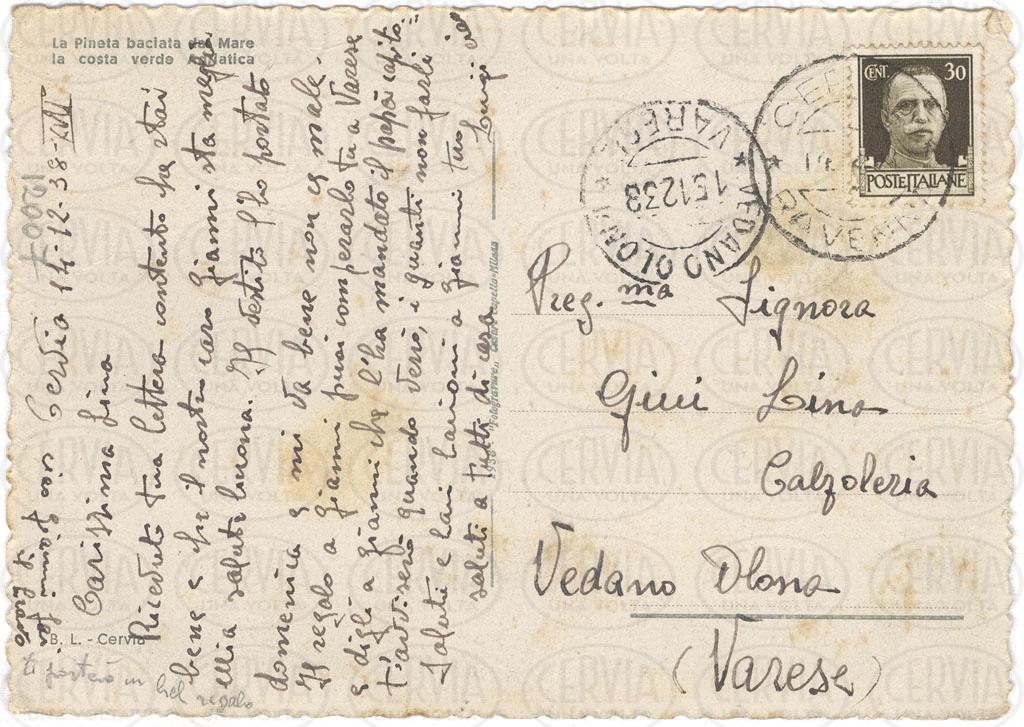 La Pineta baciata dal Mare
la costa verde Adriatica
B. L. - Cervia
1938 "Fotogravure" Cesare Capello-Milano
CENT. 30
POSTE ITALIANE
CERVIA
RAVENNA
VEDANO OLONA
VARESE
15 12 38
1200 F
Cervia 14-12-38-XVII
Carissima Lina
Riceduto tua lettera contento che stai
bene e che il nostro caro Gianni sta meglio
salute buona. Il vestito l'ho portato
domenica e mi va bene non c'è male.
Il regalo a Gianni puoi comperarlo tu a Varese
e digli a Gianni che l'ha mandato il papà capito
t'avviserò quando verrò, i guanti non farli
Saluti e baci bacioni a Gianni tuo
saluti a tutti di casa Luigi
ti porterò un bel regalo
Preg.ma Signora
Giui Lina
Calzoleria
Vedano Olona
(Varese)